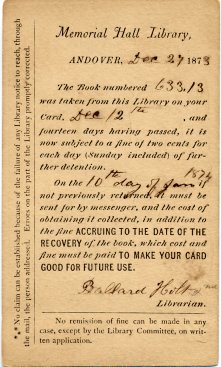 Memorial Hall Library,
ANDOVER, Dec 27 1873
The Book numbered 633.13
was taken from this Library on your
Card, Dec 12th, and
fourteen days having passed, it is
now subject to a fine of two cents for
each day (Sunday included) of fur-
ther detention.
On the 10th day of Jan 1874 if
not previously returned, it must be
sent for by messenger, and the cost of
obtaining it collected, in addition to
the fine ACCRUING TO THE DATE OF THE
RECOVERY of the book, which cost and
fine must be paid TO MAKE YOUR CARD
GOOD FOR FUTURE USE.
Ballard Holt
Librarian.
No remission of fine can be made in any
case, except by the Library Committee, on writ-
ten application.
** No claim can be established because of the failure of any Library notice to reach, through
the mail, the person addressed. Errors on the part of the Library promptly corrected.